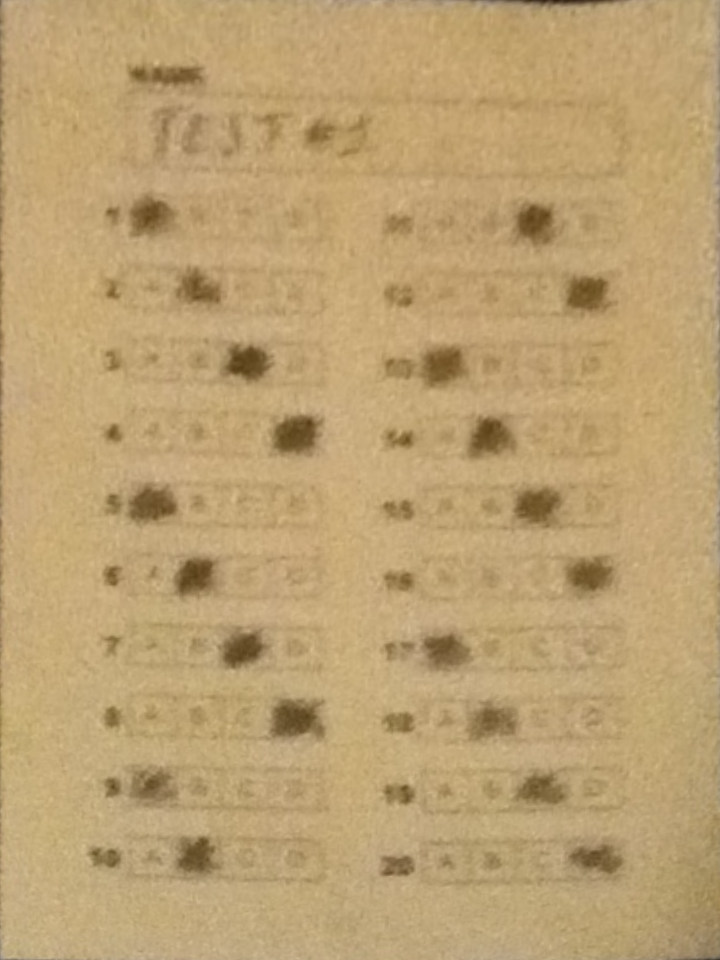 NAME
TEST #1
1
2 A
3 A B D
4 A B C
5 B C D
6 A C D
7 A B D
8 A B C
9 B C D
10 A C D
11 A B D
12 A B C
13 B C D
14 A C D
15 A B D
16 A B C
17 B C D
18 A C D
19 A B D
20 A B C